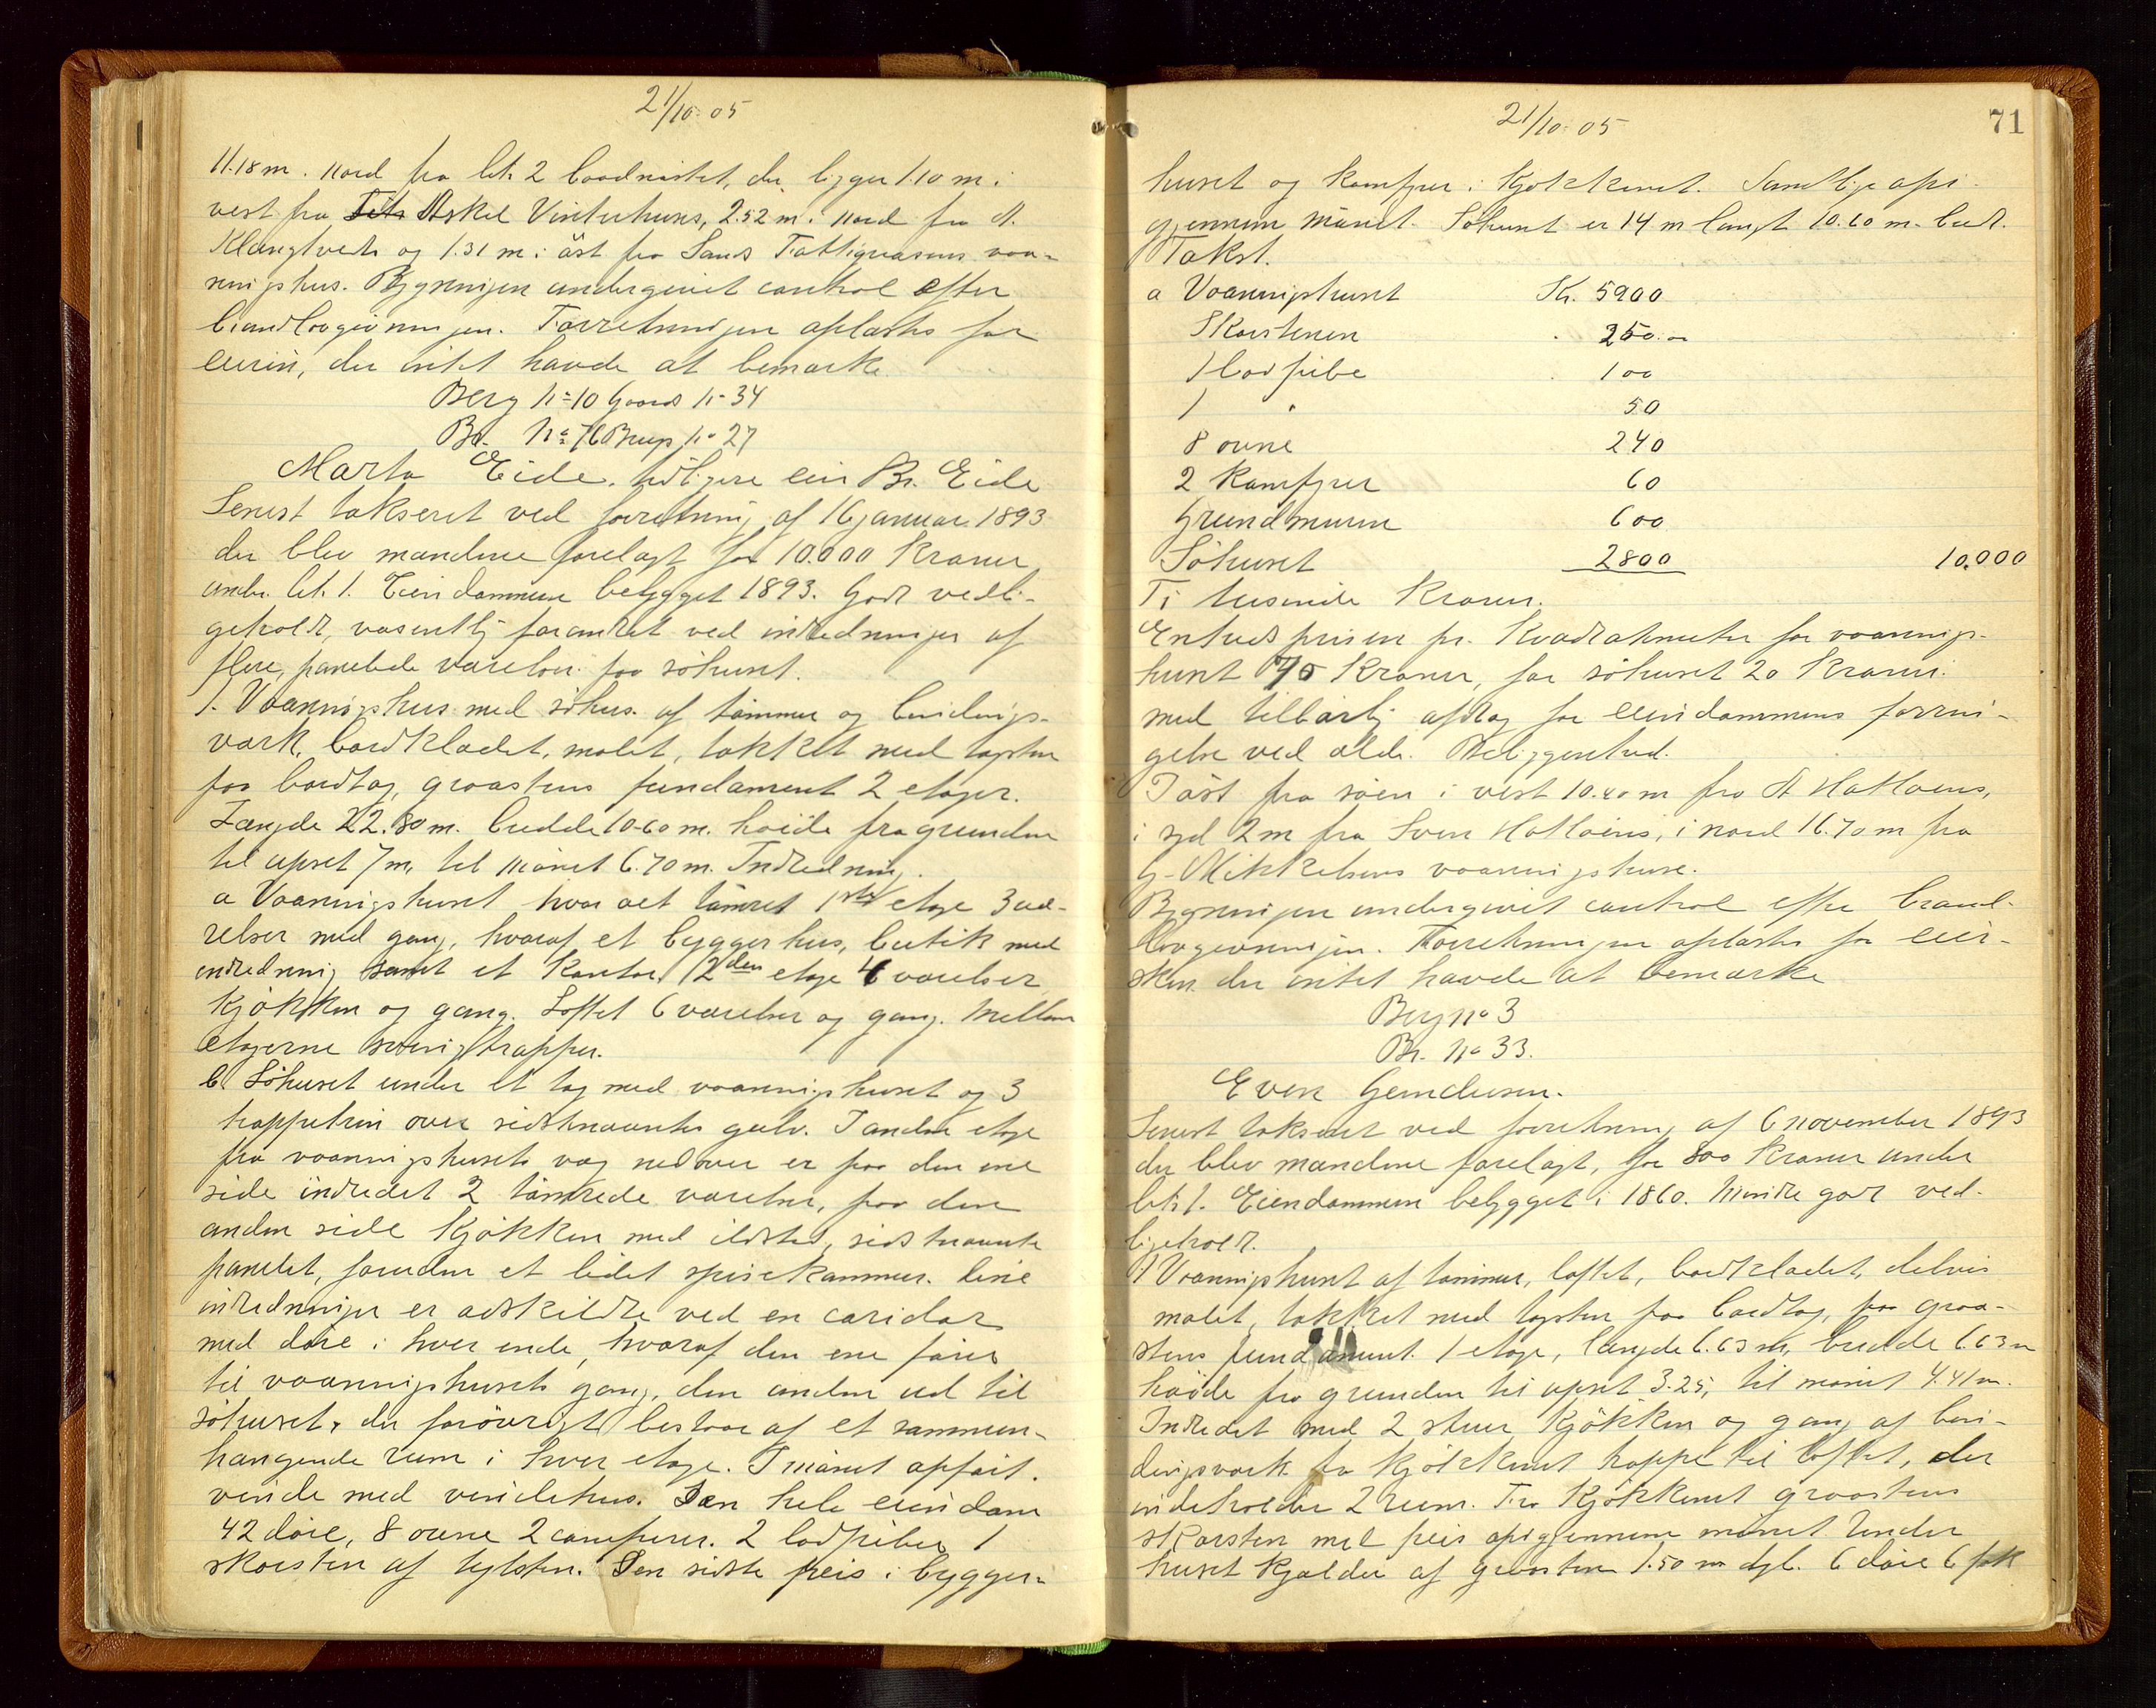 21/10 05
11.18 m. nord fra lit. 2 baadnöstet, der ligger 1.10 m. i
vest fra Askel Vinterhuns, 2.52 m. i nord fra A.
Klængtvedts og 1.31 m. i öst fra Sands Fattigvæsens vaa-
ningshus. Bygningen undergivet control efter
brandlovgivningen. Forretningen oplæstes for
eieren, der intet havde at bemærke
Berg No 10 Gaards No 34
Br. No 76 Brugs No 27
Marta Eide, tidligere eier Br. Eide
Senest takseret ved forretning af 16 januar 1893
der blev mændene forelagt for 10.000 Kroner
under lit. 1. Eiendommen bebygget 1893. Godt vedli-
geholdt, væsentlig forandret ved indredninger af
flere, panelede værelser paa söhuset.
1. Vaaningshus med söhus af tömmer og bindings-
værk, bordklædet, malet, tækket med tagsten
paa bordtag, graastens fundament 2 etager.
Længde 22.80 m. bredde 10.60 m. höide fra grunden
til opset 7 m, til mönet 6.70 m. Indredning.
a Vaaningshuset hvor alt tömret 1ste etage 3 væ-
relser med gang, hvoraf et bryggerhus, butik med
indredning samt et Kontor, 2den etage 4 værelser
Kjökken og gang. Loftet 6 værelser og gang. Mellem
etagerne svingtrapper.
b Söhuset under et tag med vaaningshuset og 3
trappetrin over sidstnævntes gulv. I anden etage
fra vaaningshusets væg nedover er paa den ene
side indredet 2 tömrede værelser, paa den
anden side Kjökken med ildsted, sidstnævnte
panelet, foruden et lidet spisekammer. Disse
indredninger er adskildte ved en coridor
med döre i hver ende, hvoraf den ene förer
til vaaningshusets gang, den anden ud til
söhuset, der forövrigt bestaar af et sammen-
hængende rum i hver etage. I mönet opfört
vinde med vindehus. Den hele eiendom
42 döre, 8 ovne 2 comfurer. 2 lodpiber 1
skorsten af teglsten. Den sidste peis i brygger-
21/10 05
71
huset og Kamfyrer i Kjökkenet. Samtlige opi-
gjennem mönet. Söhuset er 14 m langt 10.60 m. bredt.
Takst.
a Vaaningshuset Kr. 5900
Skorstenen 250.00
1 lodpibe 100
1 " 50
8 ovne 240
2 Kamfyrer 60
Grundmuren 600
Söhuset 2800 10.000
Ti tusinde Kroner.
Enhedsprisen pr. Kvadratmeter for vaanings-
huset 40 Kroner, for söhuset 20 Kroner.
med tilbörlig afdrag for eiendommens forrin-
gelse ved ælde. Beliggenhed.
I öst fra söen i vest 10.40 m fra A Hatlöens,
i syd 2 m fra Sven Hatlöens, i nord 16.70 m fra
G. Mikkelsens vaaningshuse.
Bygningen undergivet control efter brand-
lovgivningen. Forretningen oplæstes for eier-
sken der intet havde at bemærke
Berg No 3
Br. No 33.
Even Gundersen.
Senest takseret ved forretning af 6 november 1893
der blev mændene forelagt, for 800 Kroner under
lit. 1. Eiendommen bebygget i 1860. Mindre godt ved-
ligeholdt.
1 Vaaningshuset af tömmer, loftet, bordklædet, delvis
malet, tækket med tagsten paa bordtag, paa graa-
stens fundament. 1 etage, længde 6.63 m, bredde 6.63 m
höide fra grunden til opset 3.25, til mönet 4.41 m.
Indredet med 2 stuer Kjökken og gang af bin-
dingsværk fra Kjökkenet trappe til loftet, der
indeholder 2 rum. Fra Kjökkenet graastens
skorsten med peis opigjennem mönet. Under
huset Kjælder af graasten 1.50 m dyb. 6 döre 6 fak